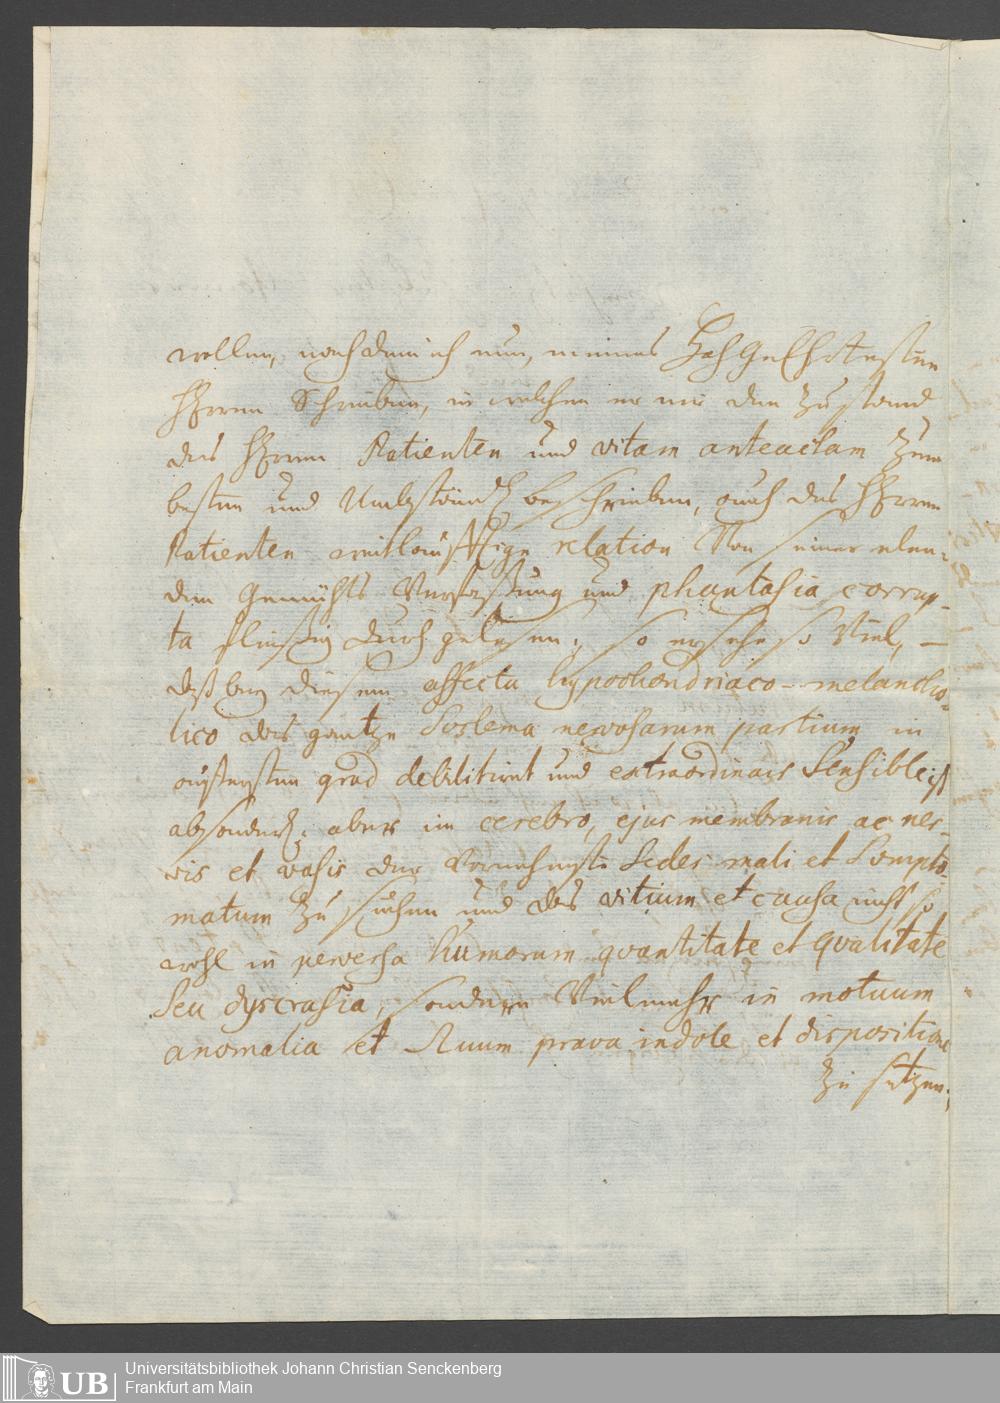 wollen, nachdem ich nun, meines HochgeEhrtesten
HErren Schreiben, in welchem er mir den Zustand
des HErren Patienten und vitam anteactam zum
besten und Umbständl. beschrieben, auch des HErren
Patienten weitläufftige relation Von seiner elen-
den Gemüths Verfassung und phantasia corrup-
ta fleißig durchgelesen; so ersehe so Viel, —
daß bey diesem affectu hypochondriaco-melancho-
lico das gantze Systema nervosarum partium in
äußersten grad debilitirt und extraordinair Sensible ist
absonderl. aber im cerebro, ejus membranis ac ner-
vis et vasis der Vornehmste Sedes mali et Sympto-
matum zu suchen und das vitium et causa nicht so
wohl in perversa humorum quantitate et qualitate
seu dyscrasia, sondern Vielmehr in motuum
anomalia et suum prava indole et dispositione
zu setzen;
UB
Universitätsbibliothek Johann Christian Senckenberg
Frankfurt am Main